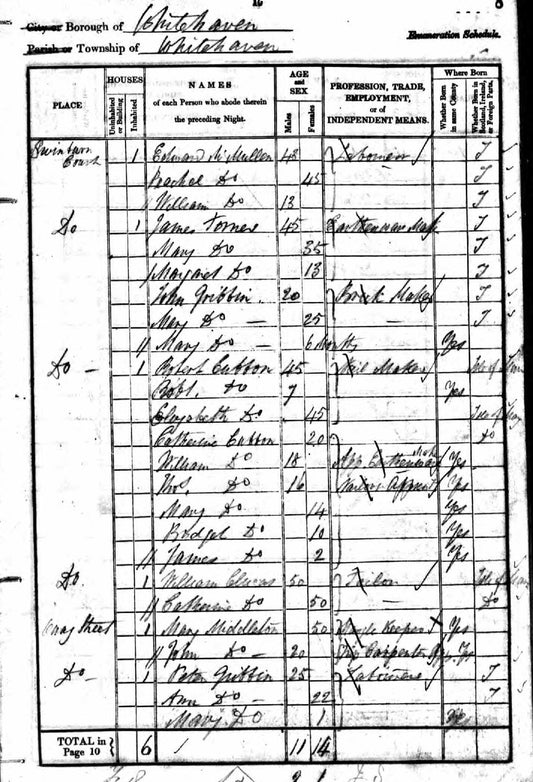 12
8
City or Borough of Whitehaven
Parish or Township of Whitehaven
Enumeration Schedule.
PLACE
HOUSES
Uninhabited or Building
Inhabited
NAMES of each Person who abode therein the preceding Night.
AGE and SEX
Males
Females
PROFESSION, TRADE, EMPLOYMENT, or of INDEPENDENT MEANS.
Where Born
Whether Born in same County
Whether Born in Scotland, Ireland, or Foreign Parts.
Court 1 Edward McMullen 43 I
Rachel Do 45 I
William Do 13 I
Do 1 James Torner 45 Earthenware Mak I
Mary Do 35 I
Margaret Do 13 I
John Gribbin 20 Maker I
Mary Do 25 I
Mary Do 6 Months Yes
Do 1 Robert Cubbon 45 Nail Maker Isle of Man
Robt. Do 7 Yes
Elizabeth Do 45 Isle of Man
Catherine Cubbon 20 Do
William Do 18 App Earthenware Yes
Thos. Do 16 Yes
Mary Do 14 Yes
Bridget Do 10 Yes
James Do 2 Yes
Do 1 William 50 Tailor Isle of Man
Catherine Do 50 Do
Street 1 Mary Middleton 50 Keeper Yes
John Do 20 Carpenter Yes
Do 1 Peter Gribbin 25 Labourer I
Ann Do 22 I
Mary Do 1 Yes
TOTAL in Page 10 6 11 14